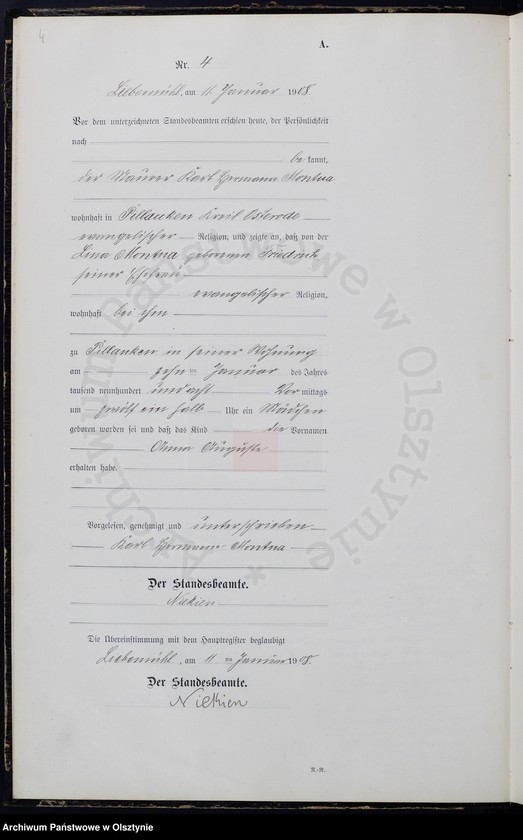 4
A.
Nr. 4
Liebemühl, am 11 Januar 1908.
Vor dem unterzeichneten Standesbeamten erschien heute, der Persönlichkeit
nach
be kannt,
der Maurer Karl Hermann Montua
wohnhaft in Pillauken Kreis Osterode
evangelischer Religion, und zeigte an, daß von der
Lina Montua geborenen
seiner Ehefrau
evangelischer Religion,
wohnhaft bei ihm
zu Pillauken in seiner Wohnung
am zehn ten Januar des Jahres
tausend neunhundert und acht Vor mittags
um zwölf ein halb Uhr ein Mädchen
geboren worden sei und daß das Kind die Vornamen
Anna Auguste
erhalten habe.
Vorgelesen, genehmigt und unterschrieben
Karl Hermann Montua
Der Standesbeamte.
Die Übereinstimmung mit dem Hauptregister beglaubigt
Liebemühl, am 11 ten Januar 1908.
Der Standesbeamte.
* Archiwum Państwowe w Olsztynie
Archiwum Państwowe w Olsztynie